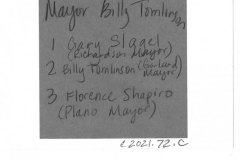 Mayor Billy Tomlinson
1 Gary Slagel
(Richardson Mayor)
2 Billy Tomlinson (Garland Mayor)
3 Florence Shapiro
(Plano Mayor)
2021.72.C